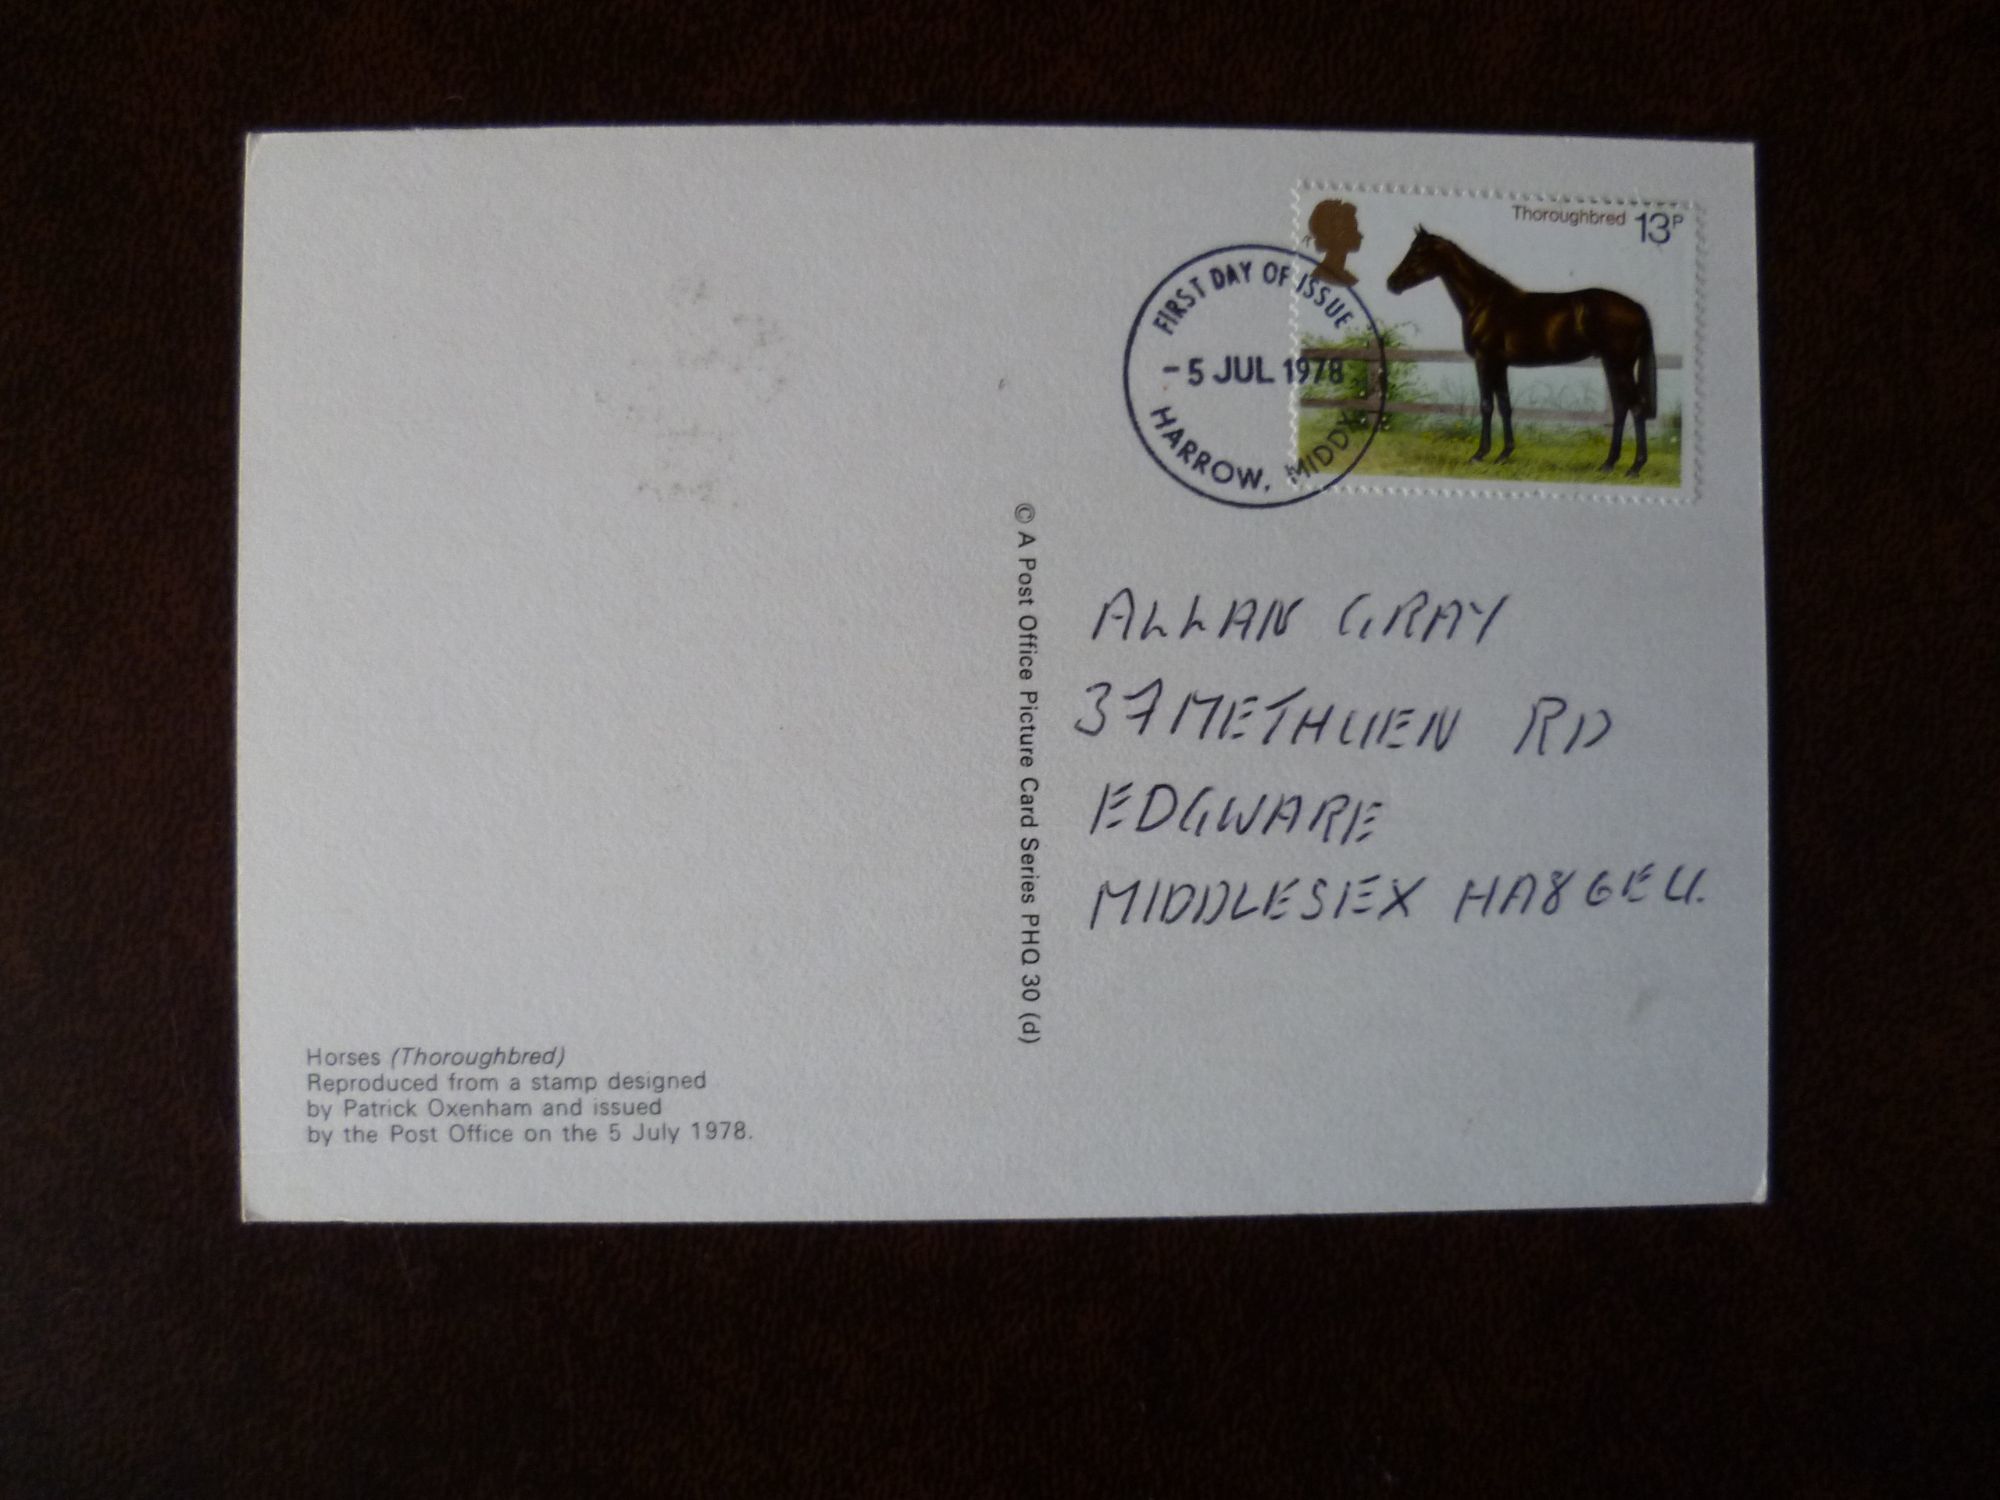 Thoroughbred 13P
FIRST DAY OF ISSUE
- 5 JUL 1978
HARROW. MIDDX
© A Post Office Picture Card Series PHQ 30 (d)
ALLAN GRAY
37 METHUEN RD
EDGWARE
MIDDLESEX HA8 6EU.
Horses (Thoroughbred)
Reproduced from a stamp designed
by Patrick Oxenham and issued
by the Post Office on the 5 July 1978.